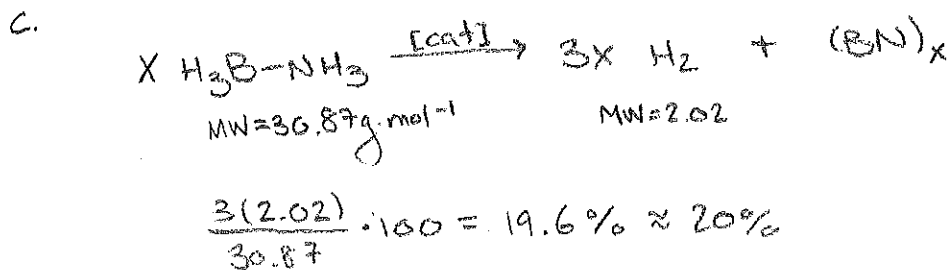 C.
[cat]
X H₃B-NH₃ → 3X H₂ + (BN)ₓ
MW=30.87g·mol⁻¹ MW=2.02
3(2.02)/30.87 ·100 = 19.6% ≈ 20%